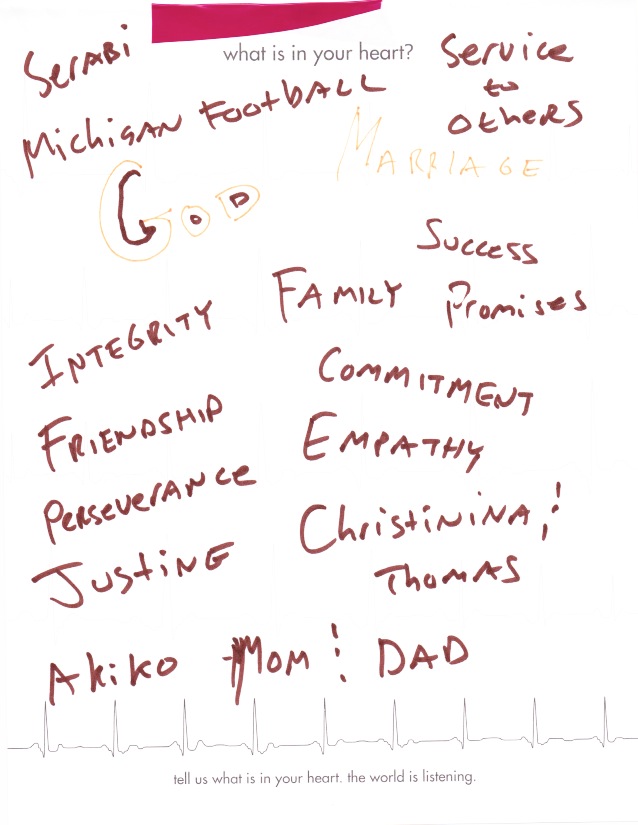 what is in your heart?
SerABi
Service
to
others
Michigan Football
MARRIAGE
GOD
Success
FAMILY
Promises
INTEGRITY
COMMITMENT
FRIENDSHIP
EMPATHY
PerseverANCE
ChristiNINA &
ThomAS
JustiNE
Akiko Mom & DAD
tell us what is in your heart. the world is listening.